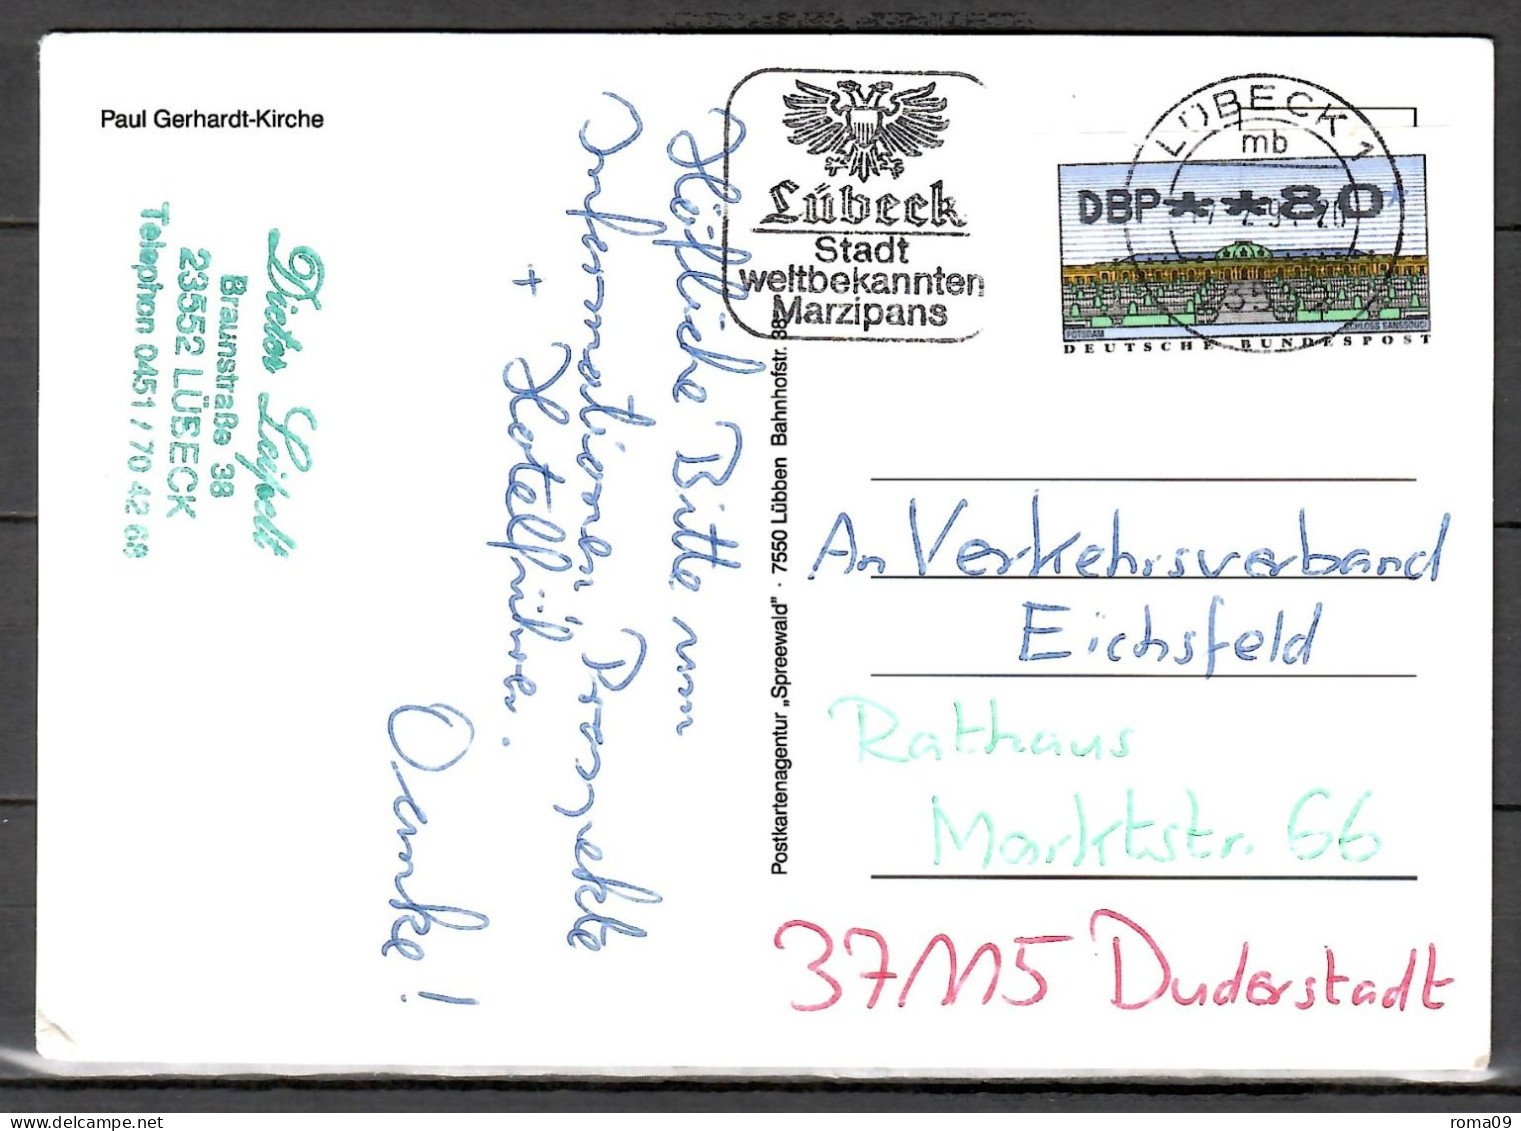 Paul Gerhardt-Kirche
Dieter Leipelt
Braunstraße 38
23552 LÜBECK
Telephon 0451 / 70 42 68
Höfliche Bitte um
Informationen, Prospekte
+ Hotelführer.
Danke!
Postkartenagentur „Spreewald" · 7550 Lübben Bahnhofstr. 38
Lübeck
Stadt
weltbekannten
Marzipans
LÜBECK 1
mb
DBP**80*
POTSDAM
SCHLOSS SANSSOUCI
DEUTSCHE BUNDESPOST
An Verkehrsverband
Eichsfeld
Rathaus
Marktstr. 66
37115 Duderstadt
roma09